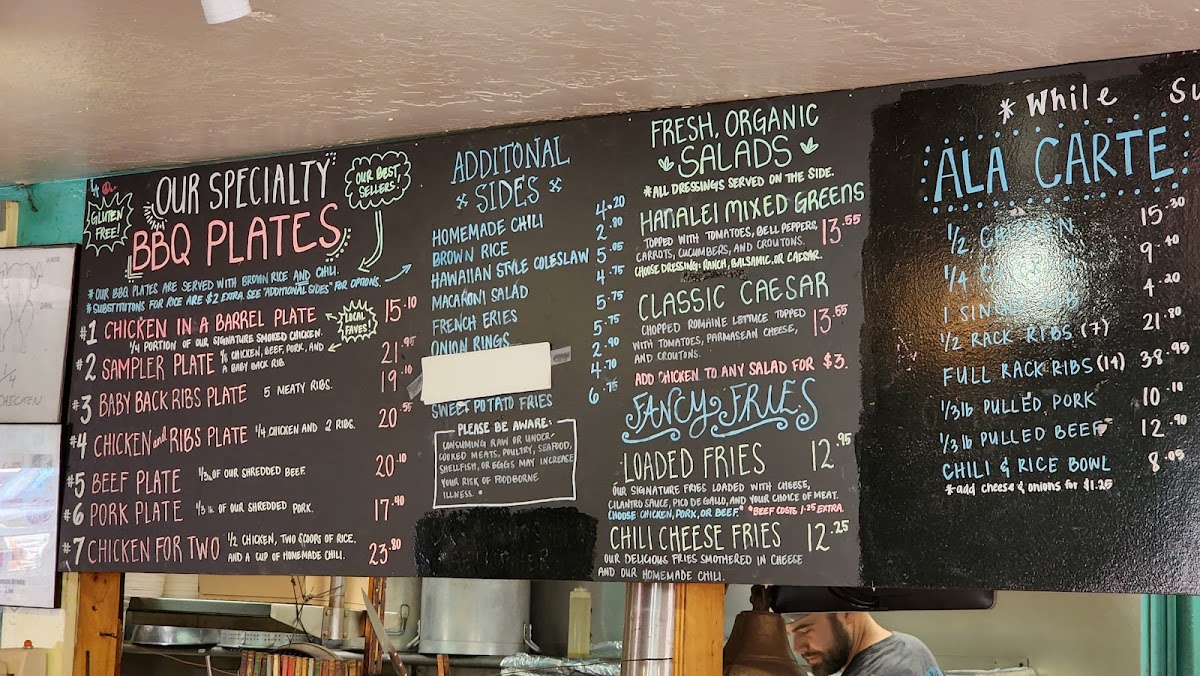 GLUTEN FREE!
OUR SPECIALTY
BBQ PLATES
OUR BEST SELLERS!
*OUR BBQ PLATES ARE SERVED WITH BROWN RICE AND CHILI.
*SUBSTITUTIONS FOR RICE ARE $2 EXTRA. SEE "ADDITIONAL SIDES" FOR OPTIONS.
#1 CHICKEN IN A BARREL PLATE 15.10
1/4 PORTION OF OUR SIGNATURE SMOKED CHICKEN.
LOCAL FAVES!
#2 SAMPLER PLATE CHICKEN, BEEF, PORK, AND 21.95
A BABY BACK RIB.
#3 BABY BACK RIBS PLATE 5 MEATY RIBS. 19.10
#4 CHICKEN and RIBS PLATE 1/4 CHICKEN AND 2 RIBS. 20.55
#5 BEEF PLATE 1/3 lb OF OUR SHREDDED BEEF. 20.10
#6 PORK PLATE 1/3 lb. OF OUR SHREDDED PORK. 17.40
#7 CHICKEN FOR TWO 1/2 CHICKEN, TWO SCOOPS OF RICE, 23.80
AND A CUP OF HOMEMADE CHILI.
ADDITONAL
SIDES
HOMEMADE CHILI 4.20
BROWN RICE 2.80
HAWAIIAN STYLE COLESLAW 5.05
MACARONI SALAD 4.75
FRENCH FRIES 5.75
ONION RINGS 5.75
2.90
4.70
SWEET POTATO FRIES 6.75
PLEASE BE AWARE:
CONSUMING RAW OR UNDER-
COOKED MEATS, POULTRY, SEAFOOD,
SHELLFISH, OR EGGS MAY INCREASE
YOUR RISK OF FOODBORNE
ILLNESS.
FRESH, ORGANIC
SALADS
*ALL DRESSINGS SERVED ON THE SIDE.
HANALEI MIXED GREENS 13.55
TOPPED WITH TOMATOES, BELL PEPPERS,
CARROTS, CUCUMBERS, AND CROUTONS.
CHOOSE DRESSING: RANCH, BALSAMIC, OR CAESAR.
CLASSIC CAESAR 13.55
CHOPPED ROMAINE LETTUCE TOPPED
WITH TOMATOES, PARMASEAN CHEESE,
AND CROUTONS.
ADD CHICKEN TO ANY SALAD FOR $3.
FANCY FRIES
LOADED FRIES 12.95
OUR SIGNATURE FRIES LOADED WITH CHEESE,
CILANTRO SAUCE, PICO DE GALLO, AND YOUR CHOICE OF MEAT.
CHOOSE CHICKEN, PORK, OR BEEF.* *BEEF COSTS 1.25 EXTRA.
CHILI CHEESE FRIES 12.25
OUR DELICIOUS FRIES SMOTHERED IN CHEESE
AND OUR HOMEMADE CHILI.
* While Su
ALA CARTE
1/2 CHICKEN 15.30
1/4 9.40
1 SINGLE RIB 4.20
1/2 RACK RIBS (7) 21.80
FULL RACK RIBS (14) 38.95
1/3 lb PULLED PORK 10.10
1/3 lb PULLED BEEF 12.90
CHILI & RICE BOWL 8.05
*add cheese & onions for $1.25
1/4
CHICKEN